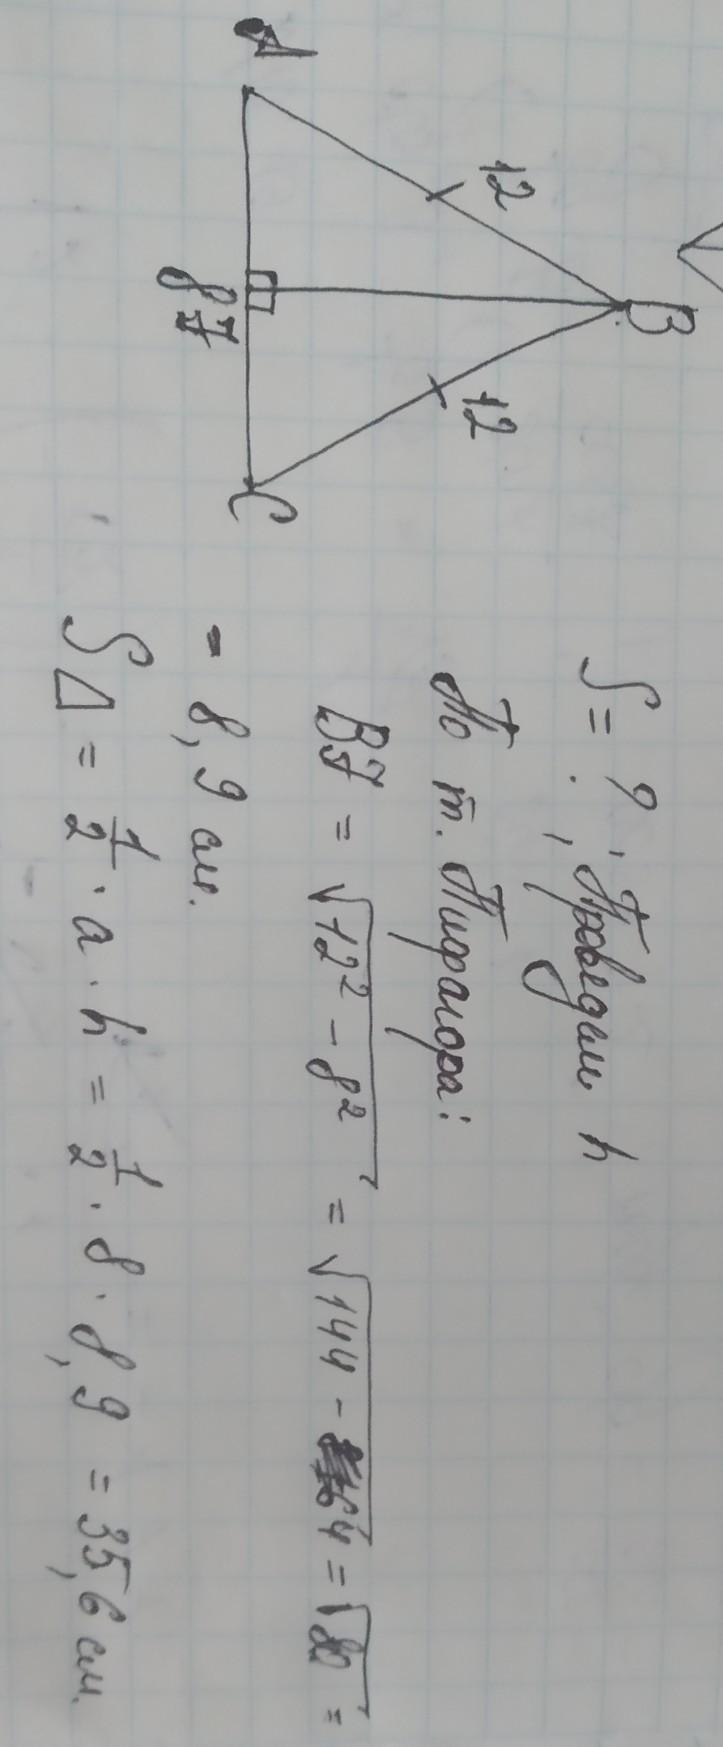 A
12
B
12
8 J
C
S = ?; Проведём h
По т. Пифагора:
BJ = √12² - 8² = √144 - 64 = √80 =
= 8,9 см.
S△ = 1/2 · a · h = 1/2 · 8 · 8,9 = 35,6 см.